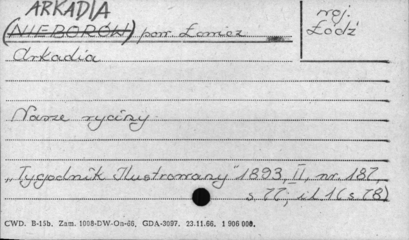 ARKADIA
(NIEBORÓW) pow. Łowicz
woj. Łódź
Arkadia
Nasze ryciny
„Tygodnik Ilustrowany" 1893, II, nr. 187,
s. 77; il. 1 (s. 78)
CWD. B-15b. Zam. 1008-DW-On-66, GDA-3097. 23.11.66. 1 906 000.